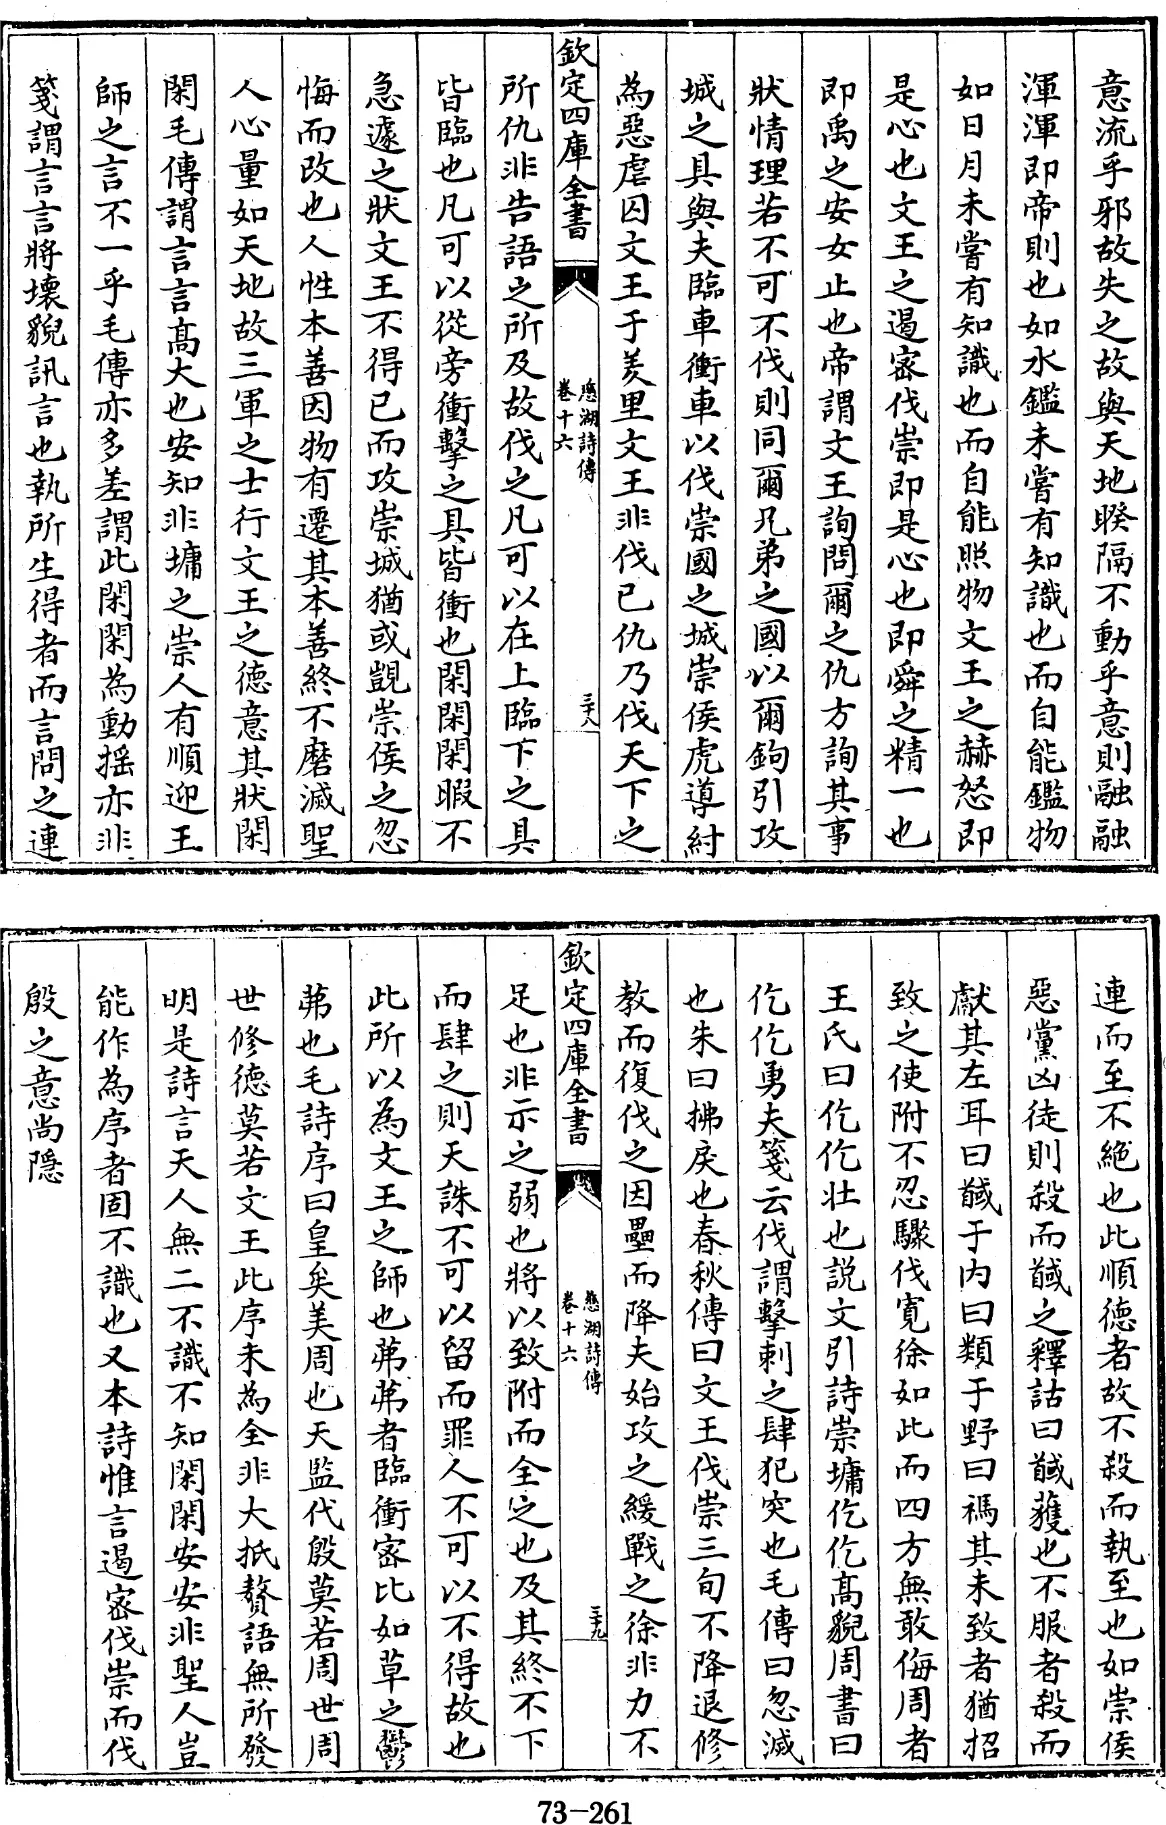 意流乎邪故失之故與天地睽隔不動乎意則融融
渾渾即帝則也如水鑑未嘗有知識也而自能鑑物
如日月未嘗有知識也而自能照物文王之赫怒即
是心也文王之遏宻伐崇即是心也即舜之精一也
即禹之安女止也帝謂文王詢問爾之仇方詢其事
狀情理若不可不伐則同爾兄弟之國以爾鉤引攻
城之具與夫臨車衝車以伐崇國之城崇侯虎導紂
為惡虐囚文王于羑里文王非伐已仇乃伐天下之
欽定四庫全書
慈湖詩傳
卷十六
三十八
所仇非告語之所及故伐之凡可以在上臨下之具
皆臨也凡可以從旁衝擊之具皆衝也閑閑閑暇不
急遽之狀文王不得已而攻崇城猶或覬崇侯之忽
悔而改也人性本善因物有遷其本善終不磨滅聖
人心量如天地故三軍之士行文王之德意其狀閑
閑毛傳謂言言髙大也安知非墉之崇人有順迎王
師之言不一乎毛傳亦多差謂此閑閑為動揺亦非
箋謂言言將壊貌訊言也執所生得者而言問之連
連而至不絶也此順德者故不殺而執至也如崇侯
惡黨凶徒則殺而馘之釋詁曰馘獲也不服者殺而
獻其左耳曰馘于内曰類于野曰禡其未致者猶招
致之使附不忍驟伐寛徐如此而四方無敢侮周者
王氏曰仡仡壮也説文引詩崇墉仡仡髙貌周書曰
仡仡勇夫箋云伐謂擊刺之肆犯突也毛傳曰忽滅
也朱曰拂戾也春秋傳曰文王伐崇三旬不降退修
教而復伐之因壘而降夫始攻之緩戰之徐非力不
欽定四庫全書
慈湖詩傳
卷十六
三十九
足也非示之弱也將以致附而全之也及其終不下
而肆之則天誅不可以留而罪人不可以不得故也
此所以為文王之師也茀茀者臨衝宻比如草之鬱
茀也毛詩序曰皇矣美周也天監代殷莫若周世周
世修德莫若文王此序未為全非大抵贅語無所發
明是詩言天人無二不識不知閑閑安安非聖人豈
能作為序者固不識也又本詩惟言遏宻伐崇而伐
殷之意尚隠
73-261